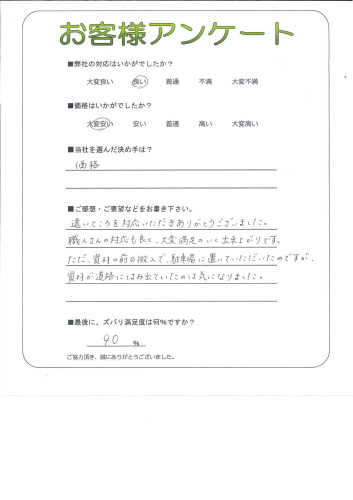 お客様アンケート
■弊社の対応はいかがでしたか？
大変良い 良い 普通 不満 大変不満
■価格はいかがでしたか？
大変安い 安い 普通 高い 大変高い
■当社を選んだ決め手は？
価格
■ご感想・ご要望などをお書き下さい。
遠いところを対応いただきありがとうございました。
職人さんの対応も良く、大変満足のいく出来上がりです。
ただ、資材の前日搬入で、駐車場に置いていただいたのですが、
資材が道路にはみ出ていたのは気になりました。
■最後に、ズバリ満足度は何％ですか？
90 ％
ご協力頂き、誠にありがとうございました。